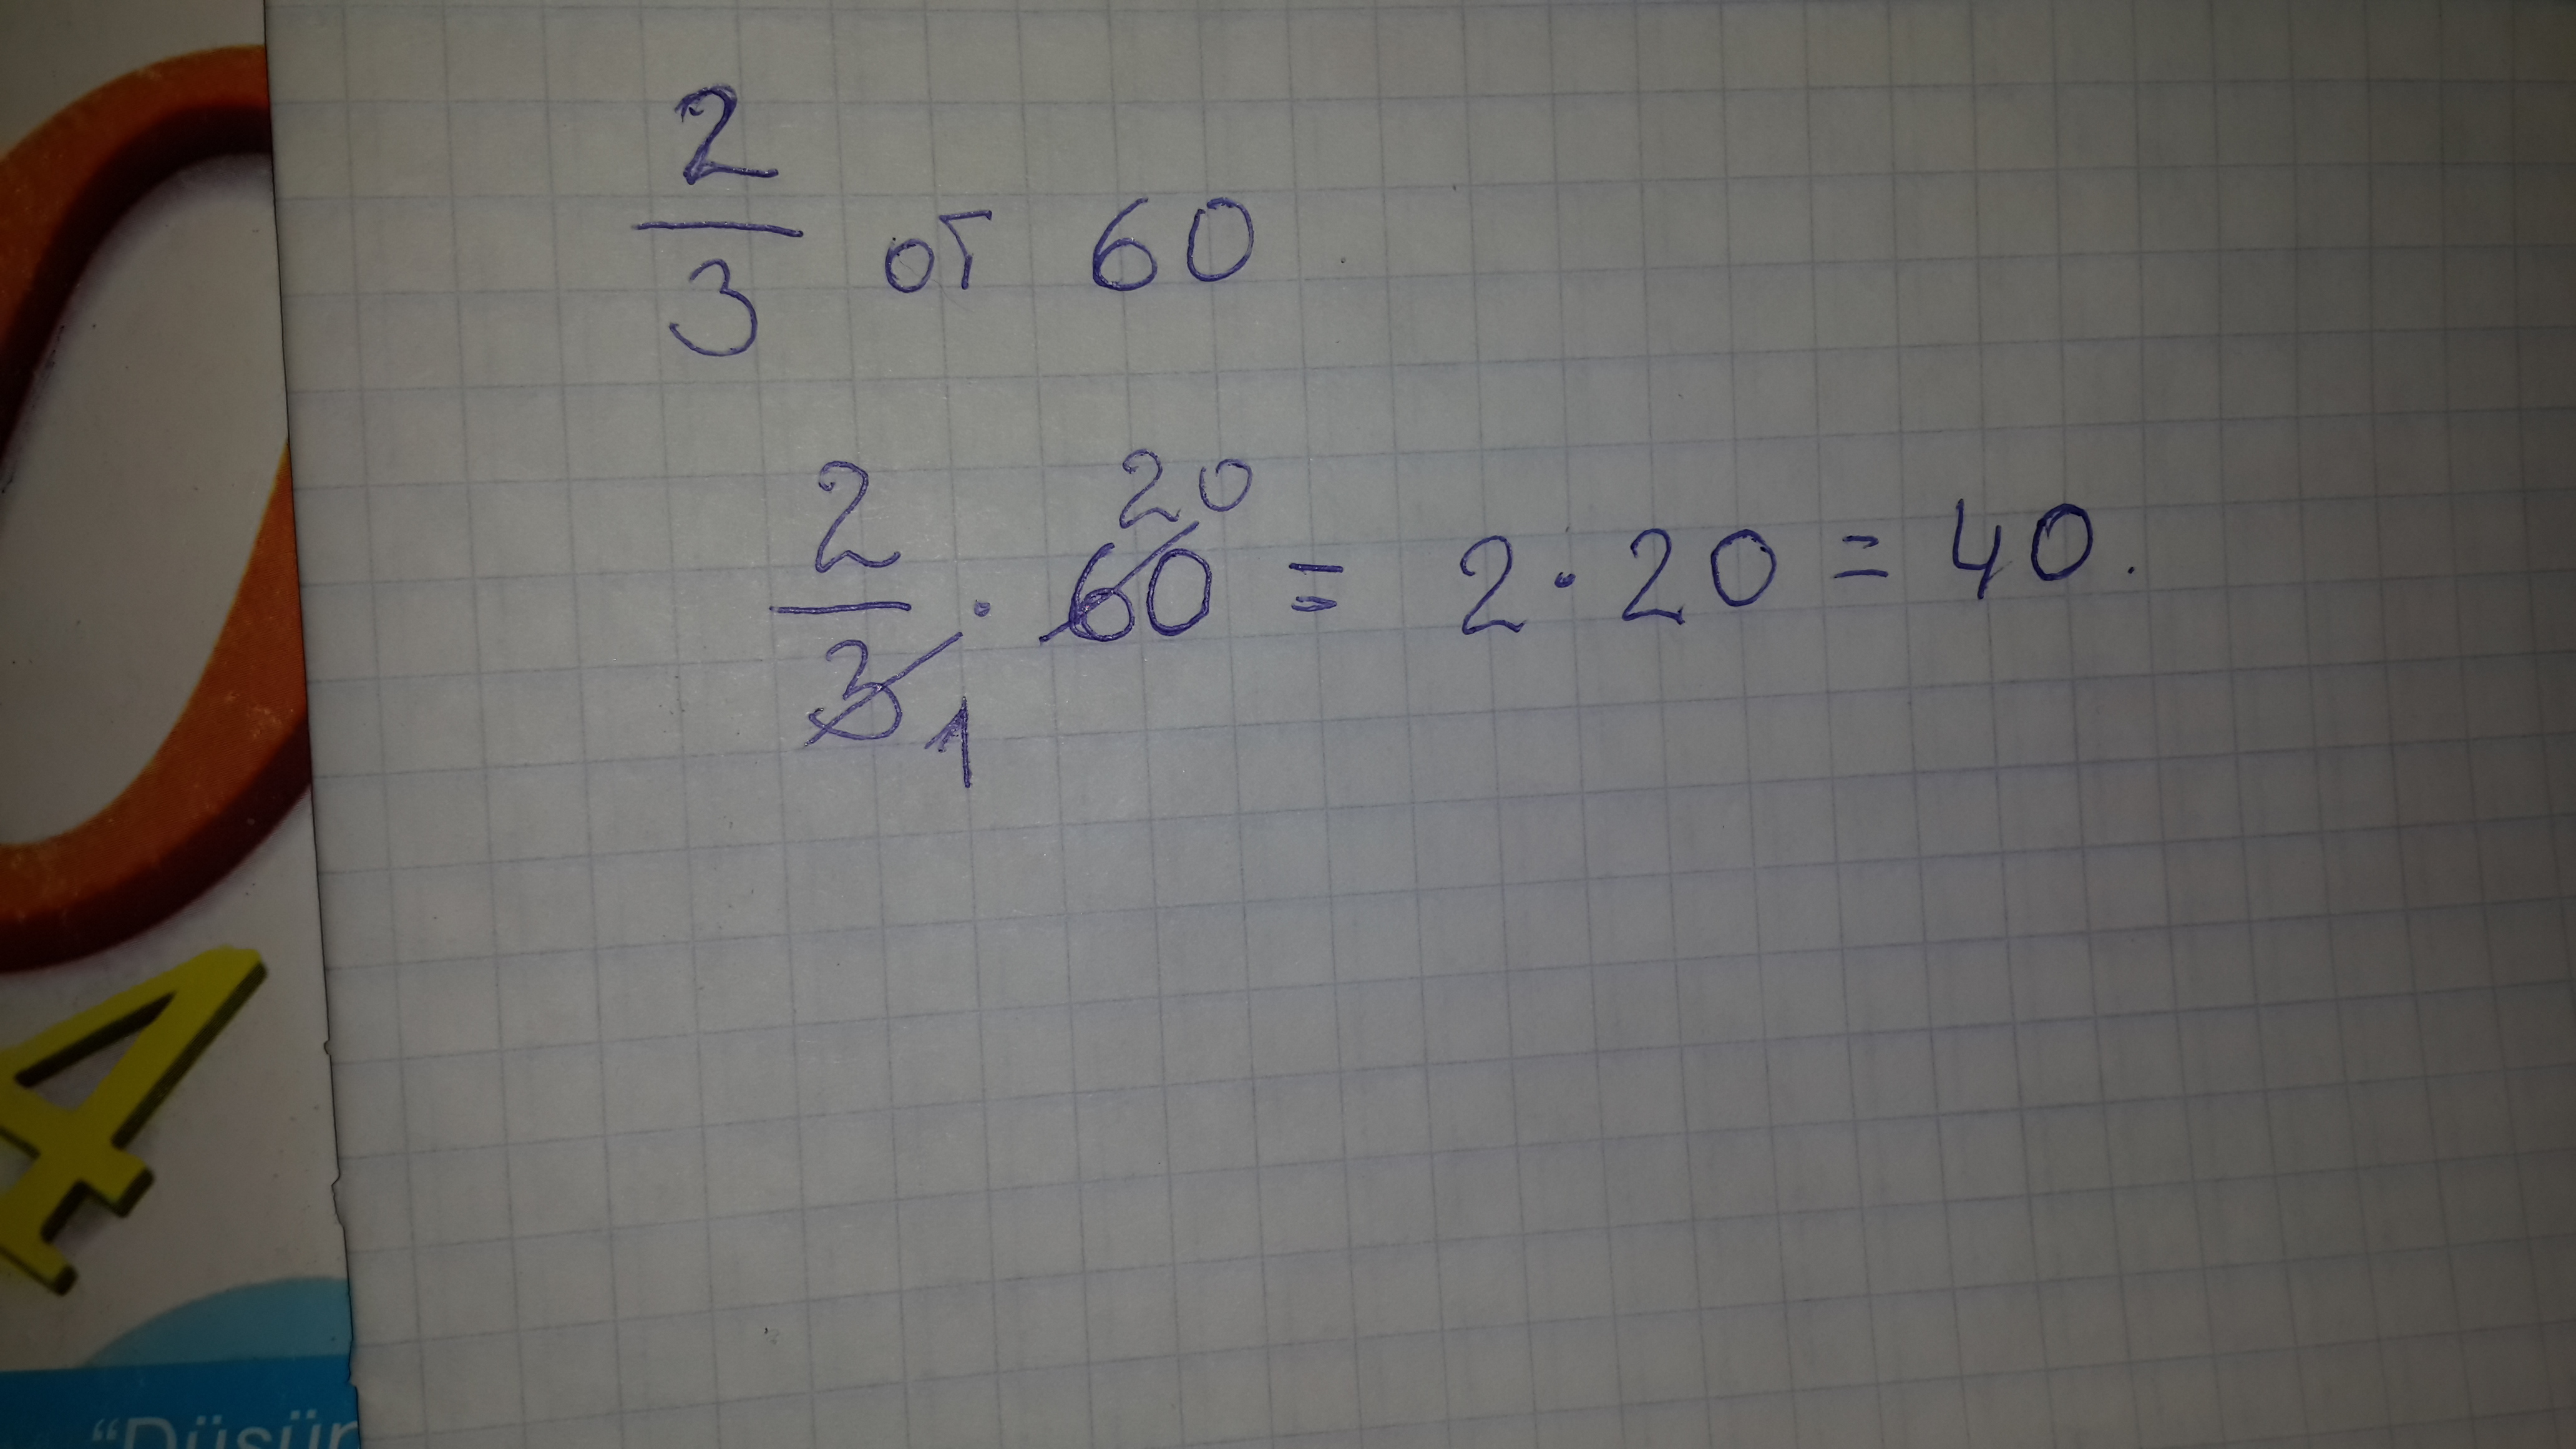 2/3 от 60
2/3 1 · 60 20 = 2 · 20 = 40.
4
“Düşün